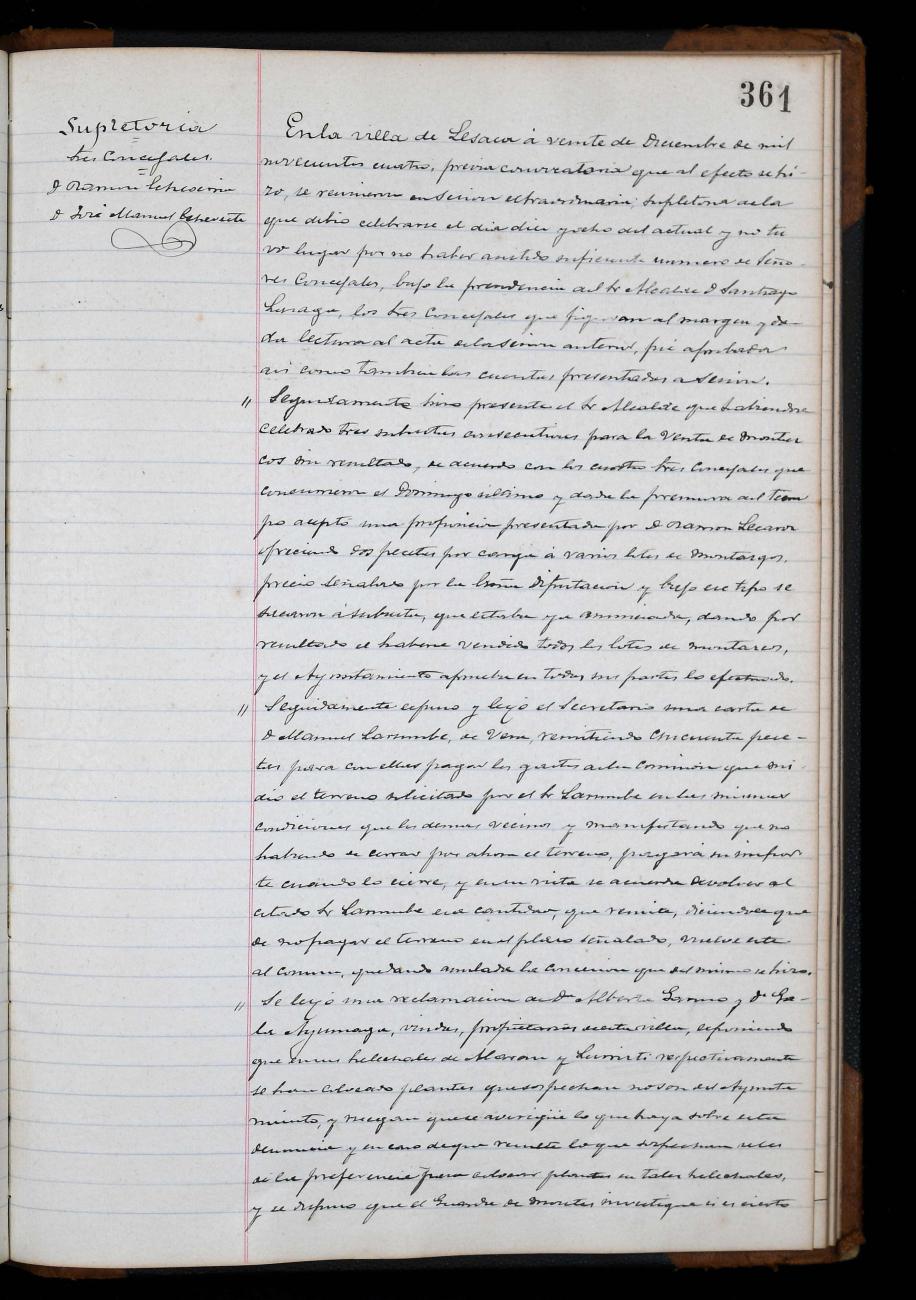 361
Supletoria
=
tres Concejales.
=
D Ramon Echeverria
D José Manuel Echeveste
En la villa de Lesaca á veinte de Diciembre de mil
novecientos cuatro, previa convocatoria que al efecto se hi-
zo, se reunieron en sesion estraordinaria, supletoria de la
que debio celebrarse el dia diez y ocho del actual y no tu
vo lugar por no haber asistido suficiente numero de Seño-
res Concejales, bajo la presidencia del Sr Alcalde D Santiago
los tres Concejales que figuran al margen y da-
da lectura al acta de la sesion anterior, fué aprobada
asi como tambien las cuentas presentadas a sesion.
" Seguidamente hizo presente el Sr Alcalde que habiendose
celebrado tres subastas consecutivas para la venta de montas
cos sin resultado, de acuerdo con los tres Concejales que
concurrieron el Domingo ultimo y dada la premura del tiem
po acepto una proposicion presentada por D Ramon
ofreciendo dos pesetas por carga á varios lotes de montazgos,
precio señalado por la Excma Diputacion y bajo ese tipo se
sacaron á subasta, que estaba ya anunciada, dando por
resultado el haberse vendido todos los lotes de montascos,
y el Ayuntamiento aprueba en todas sus partes lo efectuado.
" Seguidamente espuso y leyó el Secretario una carta de
D Manuel Larumbe, de Vera, remitiendo cincuenta pese-
tas para con ellas pagar los gastos de la comision que mi-
dió el terreno solicitado por el Sr Larumbe en las mismas
condiciones que los demas vecinos y manifestando que no
habiendo de cerrar por ahora el terreno, pagará su impor
te cuando lo cierre, y en su vista se acuerda devolver al
citado Sr Larumbe esa cantidad, que remite, diciendole que
de no pagar el terreno en el plazo señalado, vuelve este
al comun, quedando anulada la concesion que del mismo se hizo.
" Se leyó una reclamacion de Da y Da Ga-
la viudas, propietarias de esta villa, esponiendo
que en sus helechales de y respectivamente
se han colocado plantas que sospechan no son del Ayunta
miento, y ruegan que se averigüe lo que haya sobre esta
denuncia y en caso de que resulte lo que sospechan se les
dé la preferencia para colocar plantas en tales helechales,
y se dispuso que el Guarda de montes investigue si es cierto